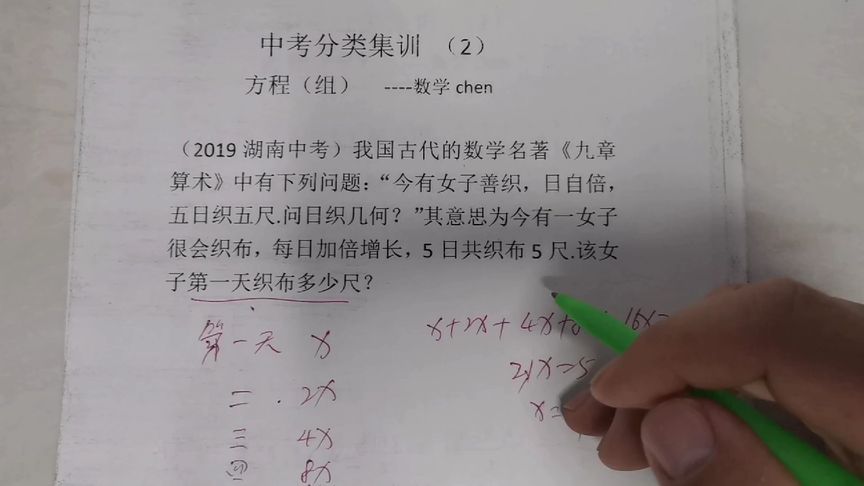 中考分类集训 （2）
方程（组） ----数学 chen
（2019 湖南中考）我国古代的数学名著《九章
算术》中有下列问题：“今有女子善织，日自倍，
五日织五尺.问日织几何？”其意思为今有一女子
很会织布，每日加倍增长，5 日共织布 5 尺.该女
子第一天织布多少尺？
第一天 x
x+2x+4x+
16x=
二 2x
x=
三 4x
四 8x